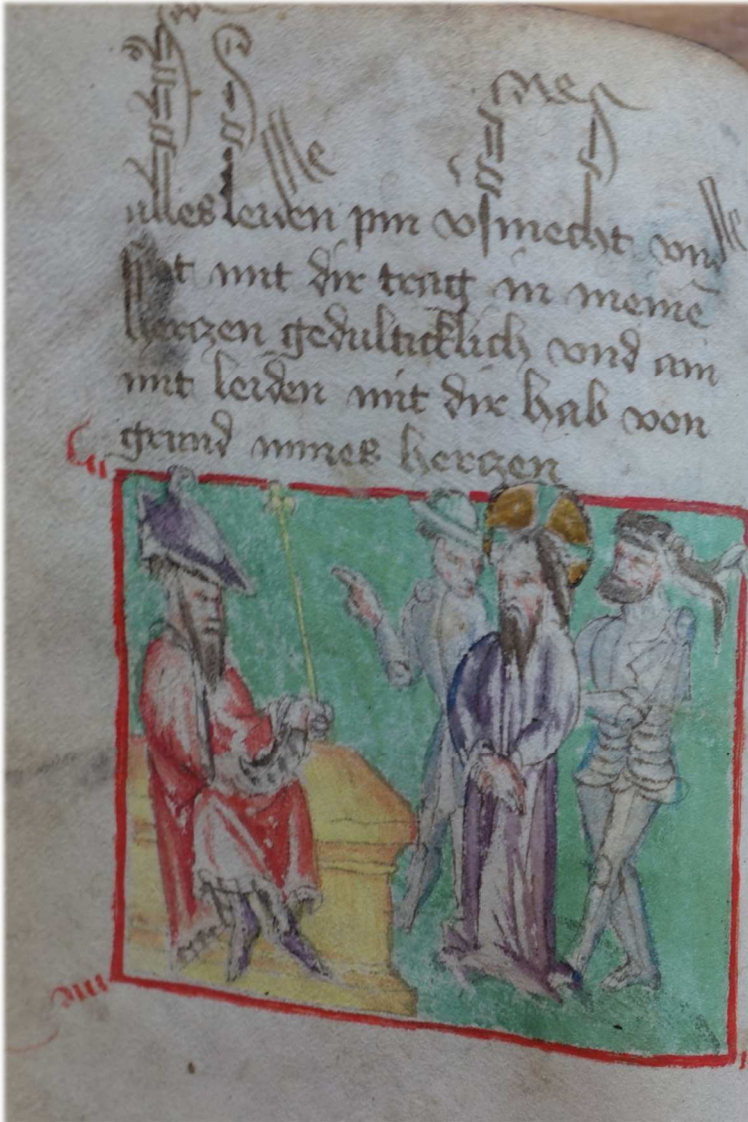 alles leiden pin vnd
mit dir trag in meinē
herczen gedulticklich vnd ain
mit leiden mit dir hab von
grund mines herczen